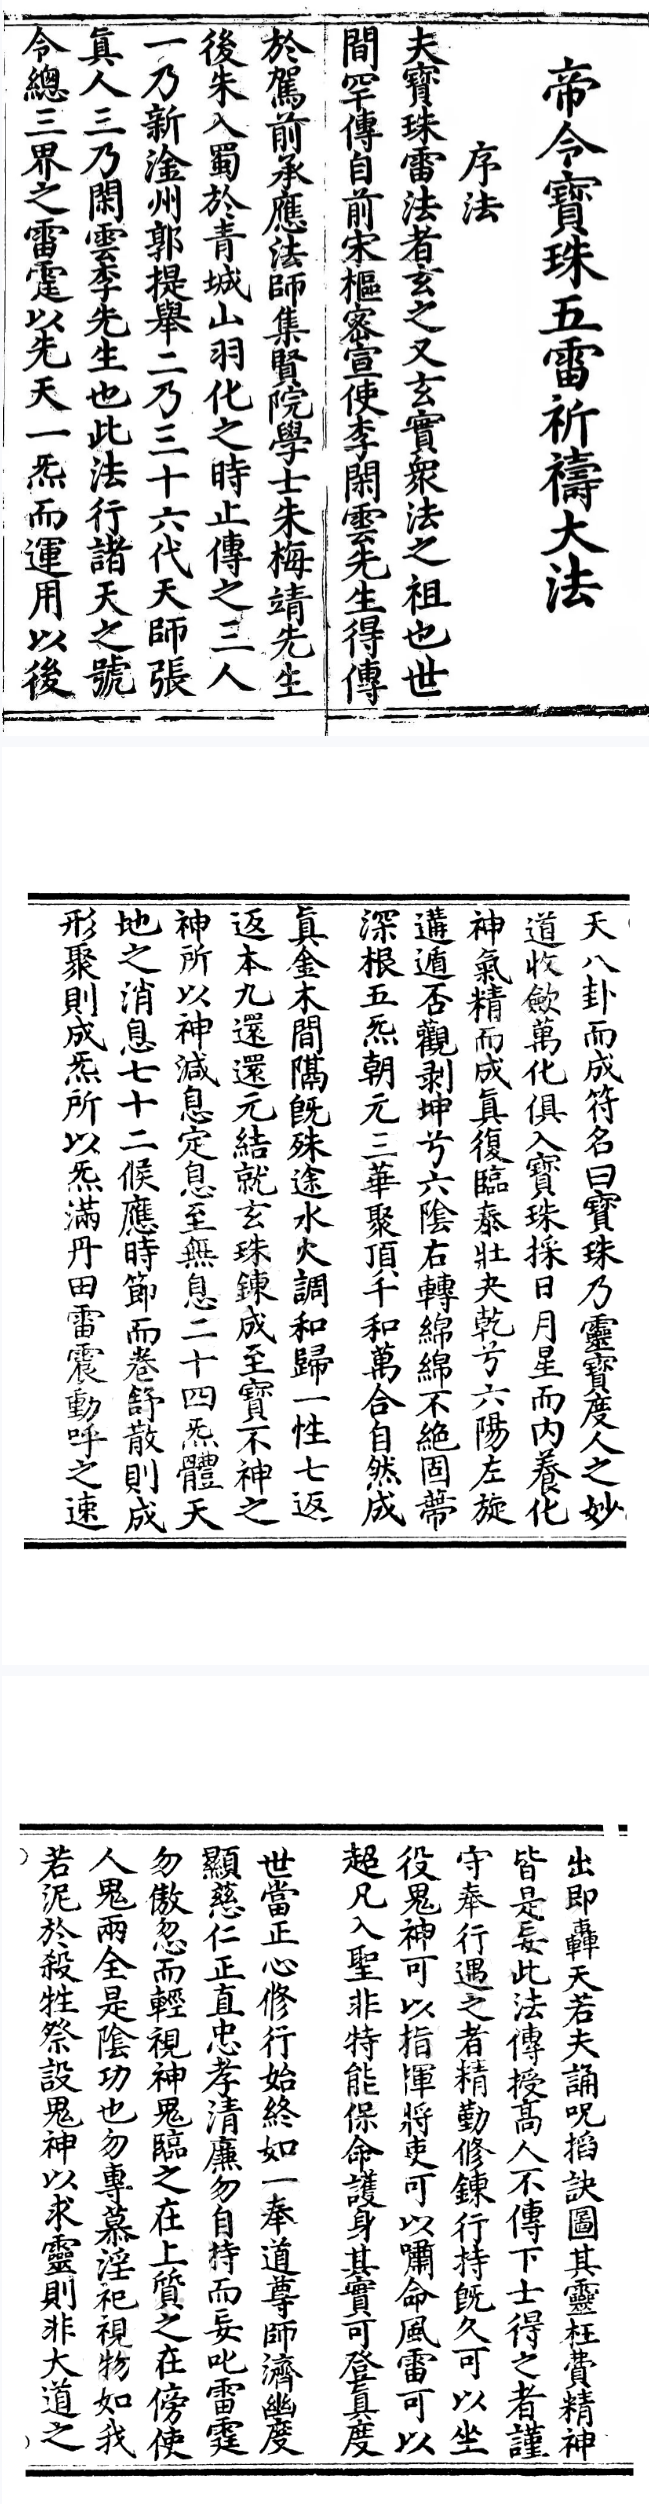 帝令寶珠五雷祈禱大法
序法
夫寶珠雷法者玄之又玄實衆法之祖也世
間罕傳自前宋樞密宣使李閑雲先生得傳
於駕前承應法師集賢院學士朱梅靖先生
後朱入蜀於青城山羽化之時止傳之三人
一乃新淦州郭提舉二乃三十六代天師張
眞人三乃閑雲李先生也此法行諸天之號
令總三界之雷霆以先天一炁而運用以後
天八卦而成符名曰寶珠乃靈寶度人之妙
道收歛萬化俱入寶珠採日月星而内養化
神氣精而成眞復臨泰壯夬乾兮六陽左旋
遘遁否觀剥坤兮六陰右轉綿綿不絶固蔕
深根五炁朝元三華聚頂千和萬合自然成
眞金木間隔旣殊途水火調和歸一性七返
返本九還還元結就玄珠錬成至寶不神之
神所以神減息定息至無息二十四炁體天
地之消息七十二候應時節而卷舒散則成
形聚則成炁所以炁滿丹田雷震動呼之速
出即轟天若夫誦呪掐訣圖其靈枉費精神
皆是妄此法傳授高人不傳下士得之者謹
守奉行遇之者精勤修錬行持旣久可以坐
役鬼神可以指揮將吏可以嘯命風雷可以
超凡入聖非特能保命護身其實可登眞度
世當正心修行始終如一奉道尊師濟幽度
顯慈仁正直忠孝清廉勿自持而妄叱雷霆
勿傲忽而輕視神鬼臨之在上質之在傍使
人鬼兩全是隂功也勿專慕淫祀視物如我
若泥於殺牲祭設鬼神以求靈則非大道之